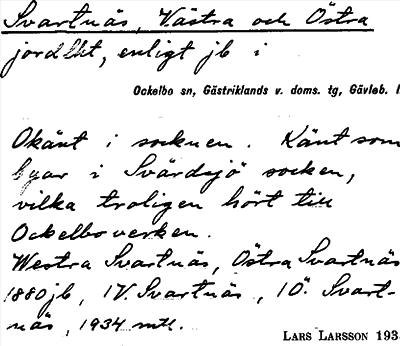 Svartnäs, Västra och Östra
jordlht, enligt jb i
Ockelbo sn, Gästriklands v. doms. tg, Gävleb. l
Okänt i socknen. Känt som
byar i Svärdsjö socken,
vilka troligen hört till
Ockelboverken.
Westra Svartnäs, Östra Svartnäs
1880 jb, 1 V. Svartnäs, 1 Ö. Svart-
näs, 1934 mtl.
LARS LARSSON 193